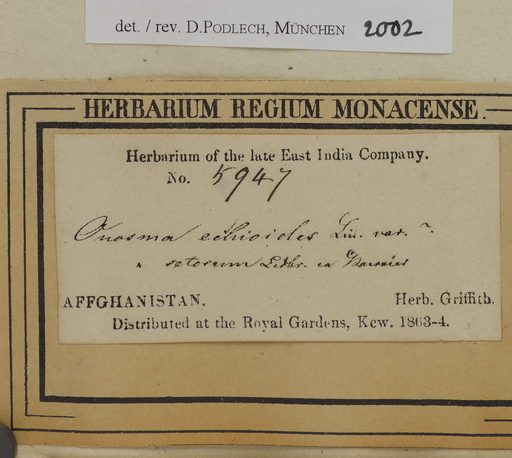 det. / rev. D.PODLECH, MÜNCHEN 2002
HERBARIUM REGIUM MONACENSE.
Herbarium of the late East India Company.
No. 5947
Onosma echioides Lin. var.
setosum Ledbr. ex
AFFGHANISTAN. Herb. Griffith.
Distributed at the Royal Gardens, Kew. 1863-4.